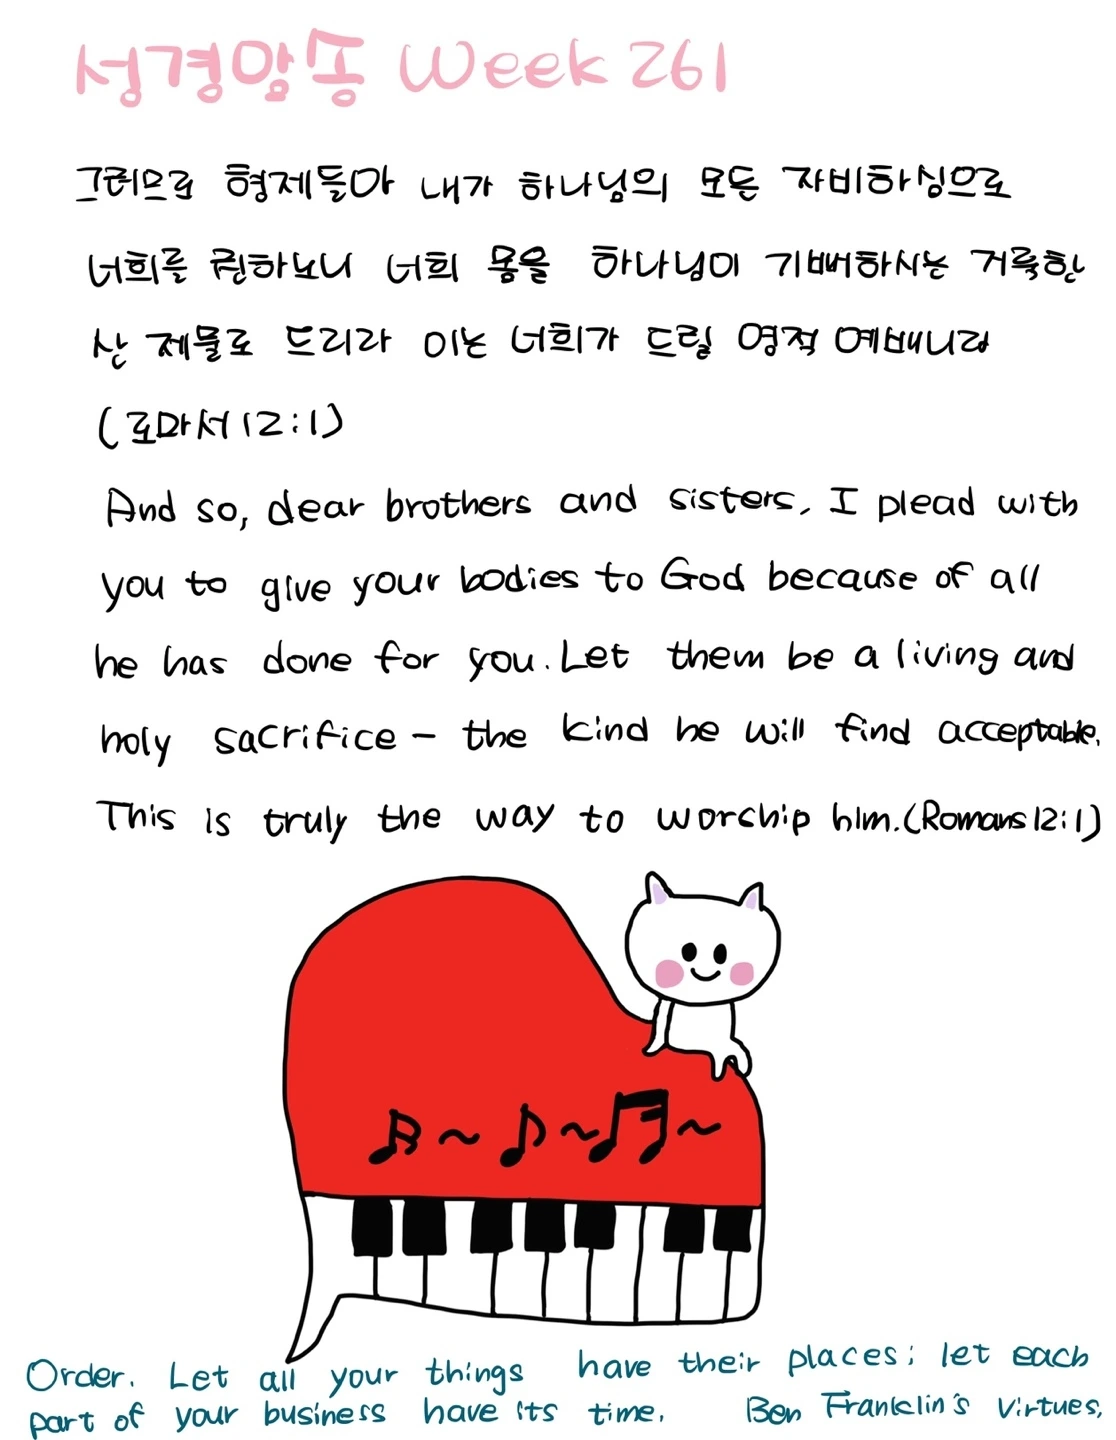 성경암송 Week 261
그러므로 형제들아 내가 하나님의 모든 자비하심으로
너희를 권하노니 너희 몸을 하나님이 기뻐하시는 거룩한
산 제물로 드리라 이는 너희가 드릴 영적 예배니라
(로마서 12:1)
And so, dear brothers and sisters, I plead with
you to give your bodies to God because of all
he has done for you. Let them be a living and
holy sacrifice - the kind he will find acceptable.
This is truly the way to worship him. (Romans 12:1)
Order. Let all your things have their places; let each
part of your business have its time. Ben Franklin's virtues.